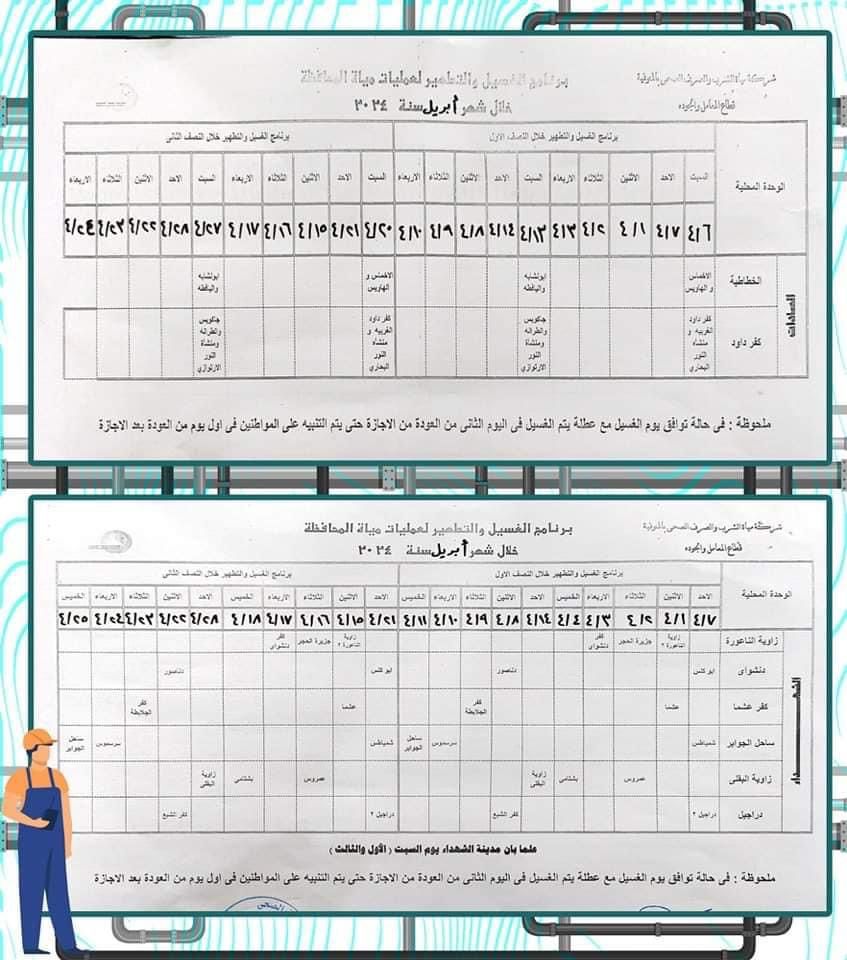 شركة مياه الشرب والصرف الصحى بالمنوفية
قطاع المعامل والجوده
برنامج الغسيل والتطهير لعمليات مياة المحافظة
خلال شهر أبريل سنة ٢٠٢٤
الوحدة المحلية
برنامج الغسيل والتطهير خلال النصف الاول
برنامج الغسيل والتطهير خلال النصف الثانى
السبت الاحد الاثنين الثلاثاء الاربعاء السبت الاحد الاثنين الثلاثاء الاربعاء السبت الاحد الاثنين الثلاثاء الاربعاء السبت الاحد الاثنين الثلاثاء الاربعاء
٤/٦ ٤/٧ ٤/١ ٤/٢ ٤/٣ ٤/١٣ ٤/١٤ ٤/٨ ٤/٩ ٤/١٠ ٤/٢٠ ٤/٢١ ٤/١٥ ٤/١٦ ٤/١٧ ٤/٢٧ ٤/٢٨ ٤/٢٢ ٤/٢٣ ٤/٢٤
السادات
الخطاطبة
الاخماس و الهاويس
ابونشابه واليافطه
الاخماس و الهاويس
ابونشابه واليافطه
كفر داود
كفر داود الغربيه و منشأه النور البحاري
جكويس والطرانه ومنشأة النور الارتوازي
كفر داود الغربيه و منشأه النور البحاري
جكويس والطرانه ومنشأة النور الارتوازي
ملحوظة : فى حالة توافق يوم الغسيل مع عطلة يتم الغسيل فى اليوم الثانى من العودة من الاجازة حتى يتم التنبيه على المواطنين فى اول يوم من العودة بعد الاجازة
شركة مياه الشرب والصرف الصحى بالمنوفية
قطاع المعامل والجوده
برنامج الغسيل والتطهير لعمليات مياة المحافظة
خلال شهر أبريل سنة ٢٠٢٤
الوحدة المحلية
برنامج الغسيل والتطهير خلال النصف الاول
برنامج الغسيل والتطهير خلال النصف الثانى
الاحد الاثنين الثلاثاء الاربعاء الخميس الاحد الاثنين الثلاثاء الاربعاء الخميس الاحد الاثنين الثلاثاء الاربعاء الخميس الاحد الاثنين الثلاثاء الاربعاء الخميس
٤/٧ ٤/١ ٤/٢ ٤/٣ ٤/٤ ٤/١٤ ٤/٨ ٤/٩ ٤/١٠ ٤/١١ ٤/٢١ ٤/١٥ ٤/١٦ ٤/١٧ ٤/١٨ ٤/٢٨ ٤/٢٢ ٤/٢٣ ٤/٢٤ ٤/٢٥
الشهداء
زاوية الناعورة زاوية الناعورة ٢ جزيرة الحجر كفر دنشواى زاوية الناعورة ٢ جزيرة الحجر كفر دنشواى
دنشواى ابو كلس دناصور ابو كلس دناصور
كفر عشما عشما كفر الجلابطة عشما كفر الجلابطة
ساحل الجوابر شمياطس سرسموس ساحل الجوابر شمياطس سرسموس ساحل الجوابر
زاوية البقلى عمروس بشتامى زاوية البقلى عمروس بشتامى زاوية البقلى
دراجيل دراجيل ٢ كفر الشبع دراجيل ٢ كفر الشبع
علما بان مدينة الشهداء يوم السبت ( الأول والثالث )
ملحوظة : فى حالة توافق يوم الغسيل مع عطلة يتم الغسيل فى اليوم الثانى من العودة من الاجازة حتى يتم التنبيه على المواطنين فى اول يوم من العودة بعد الاجازة